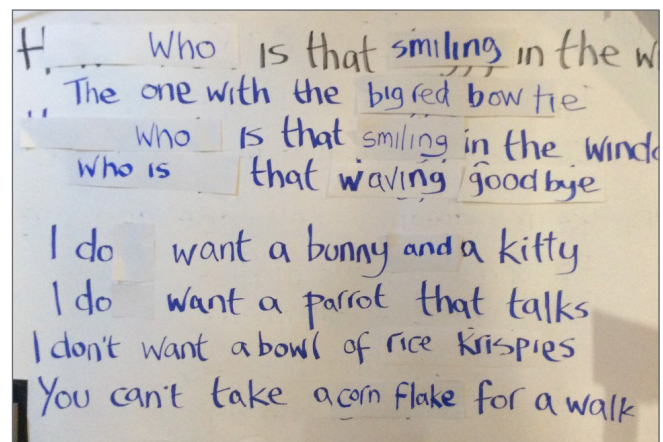 Who is that smiling in the w
The one with the big red bow tie
Who is that smiling in the windo
Who is that waving goodbye
I do want a bunny and a kitty
I do want a parrot that talks
I don't want a bowl of rice krispies
You can't take a corn flake for a walk